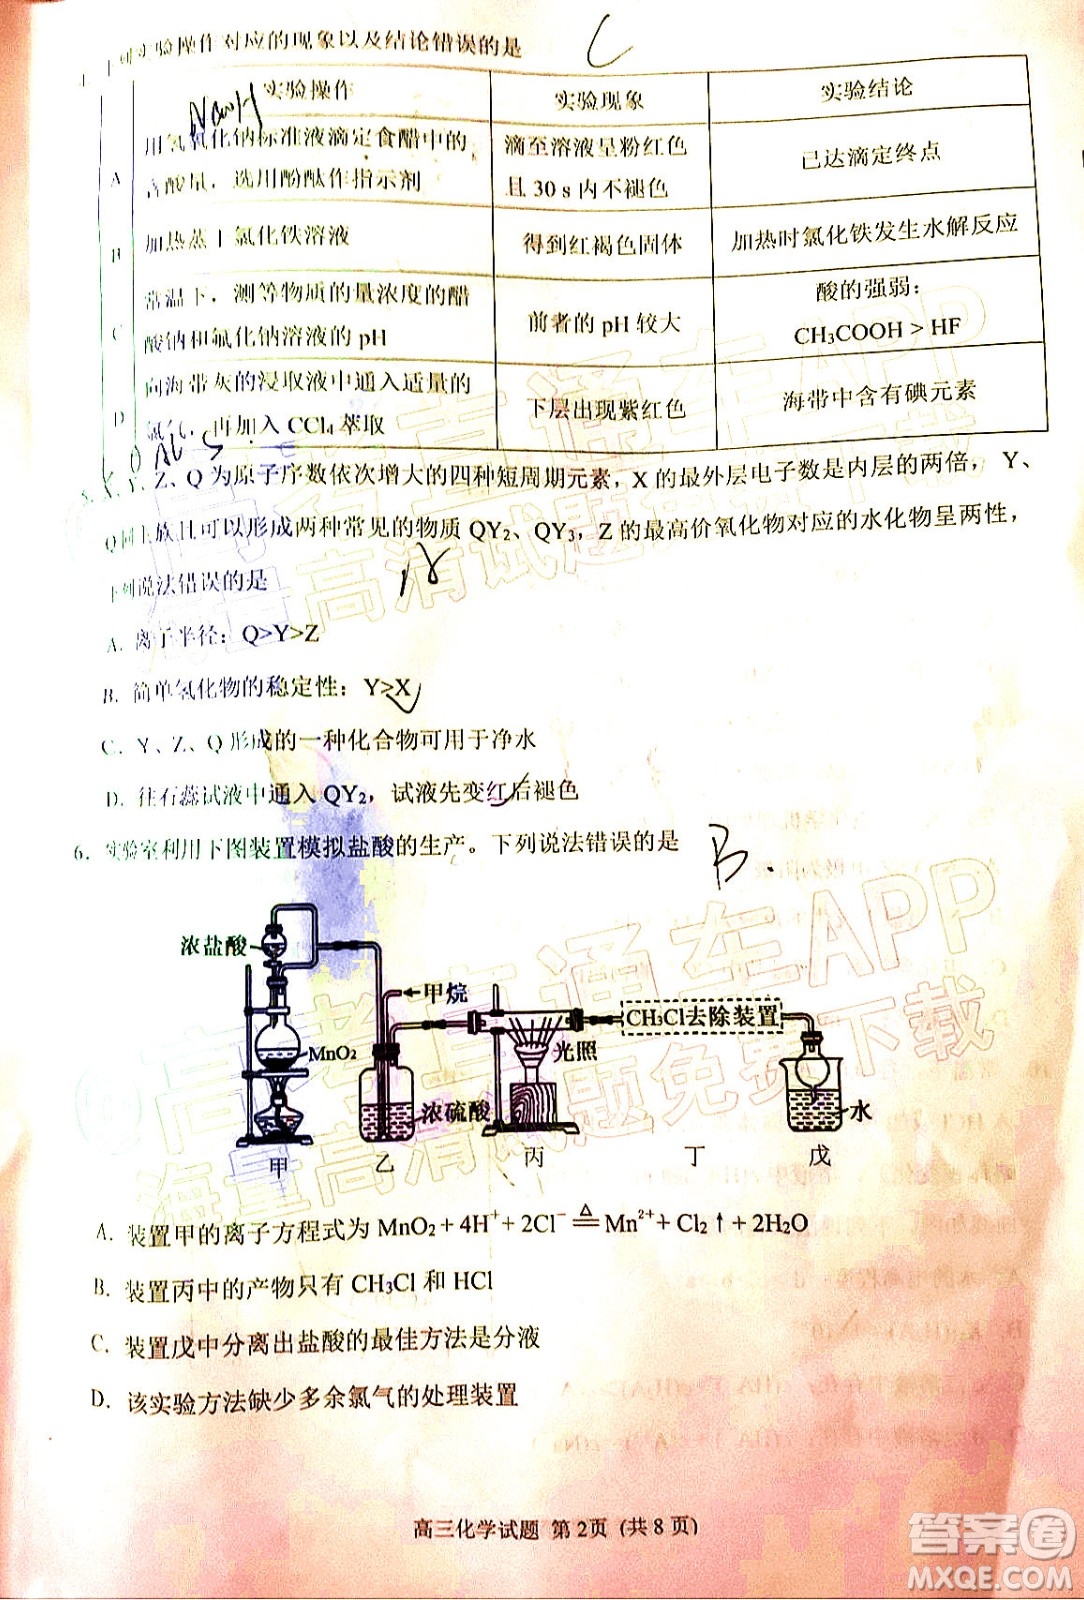 下列实验操作对应的现象以及结论错误的是
C
实验操作 实验现象 实验结论
NaOH
A 用氢氧化钠标准液滴定食醋中的 滴至溶液呈粉红色 已达滴定终点
含酸量，选用酚酞作指示剂 且 30 s 内不褪色
B 加热蒸干氯化铁溶液 得到红褐色固体 加热时氯化铁发生水解反应
C 常温下，测等物质的量浓度的醋 前者的 pH 较大 酸的强弱：
酸钠和氟化钠溶液的 pH CH₃COOH > HF
D 向海带灰的浸取液中通入适量的 下层出现紫红色 海带中含有碘元素
氯气，再加入 CCl₄ 萃取
O Al S
5. X、Y、Z、Q 为原子序数依次增大的四种短周期元素，X 的最外层电子数是内层的两倍， Y、
Q 同主族且可以形成两种常见的物质 QY₂、QY₃，Z 的最高价氧化物对应的水化物呈两性，
下列说法错误的是
A. 离子半径：Q>Y>Z
B. 简单氢化物的稳定性：Y>X
C. Y、Z、Q 形成的一种化合物可用于净水
D. 往石蕊试液中通入 QY₂，试液先变红后褪色
6. 实验室利用下图装置模拟盐酸的生产。下列说法错误的是
B.
浓盐酸
甲烷
CH₃Cl去除装置
MnO₂
光照
浓硫酸
水
甲 乙 丙 丁 戊
A. 装置甲的离子方程式为 MnO₂ + 4H⁺ + 2Cl⁻ ≜ Mn²⁺ + Cl₂↑ + 2H₂O
B. 装置丙中的产物只有 CH₃Cl 和 HCl
C. 装置戊中分离出盐酸的最佳方法是分液
D. 该实验方法缺少多余氯气的处理装置
高三化学试题 第 2页 (共 8 页)
高考直通车APP
海量高清试题免费下载
答案圈
MXQE.COM